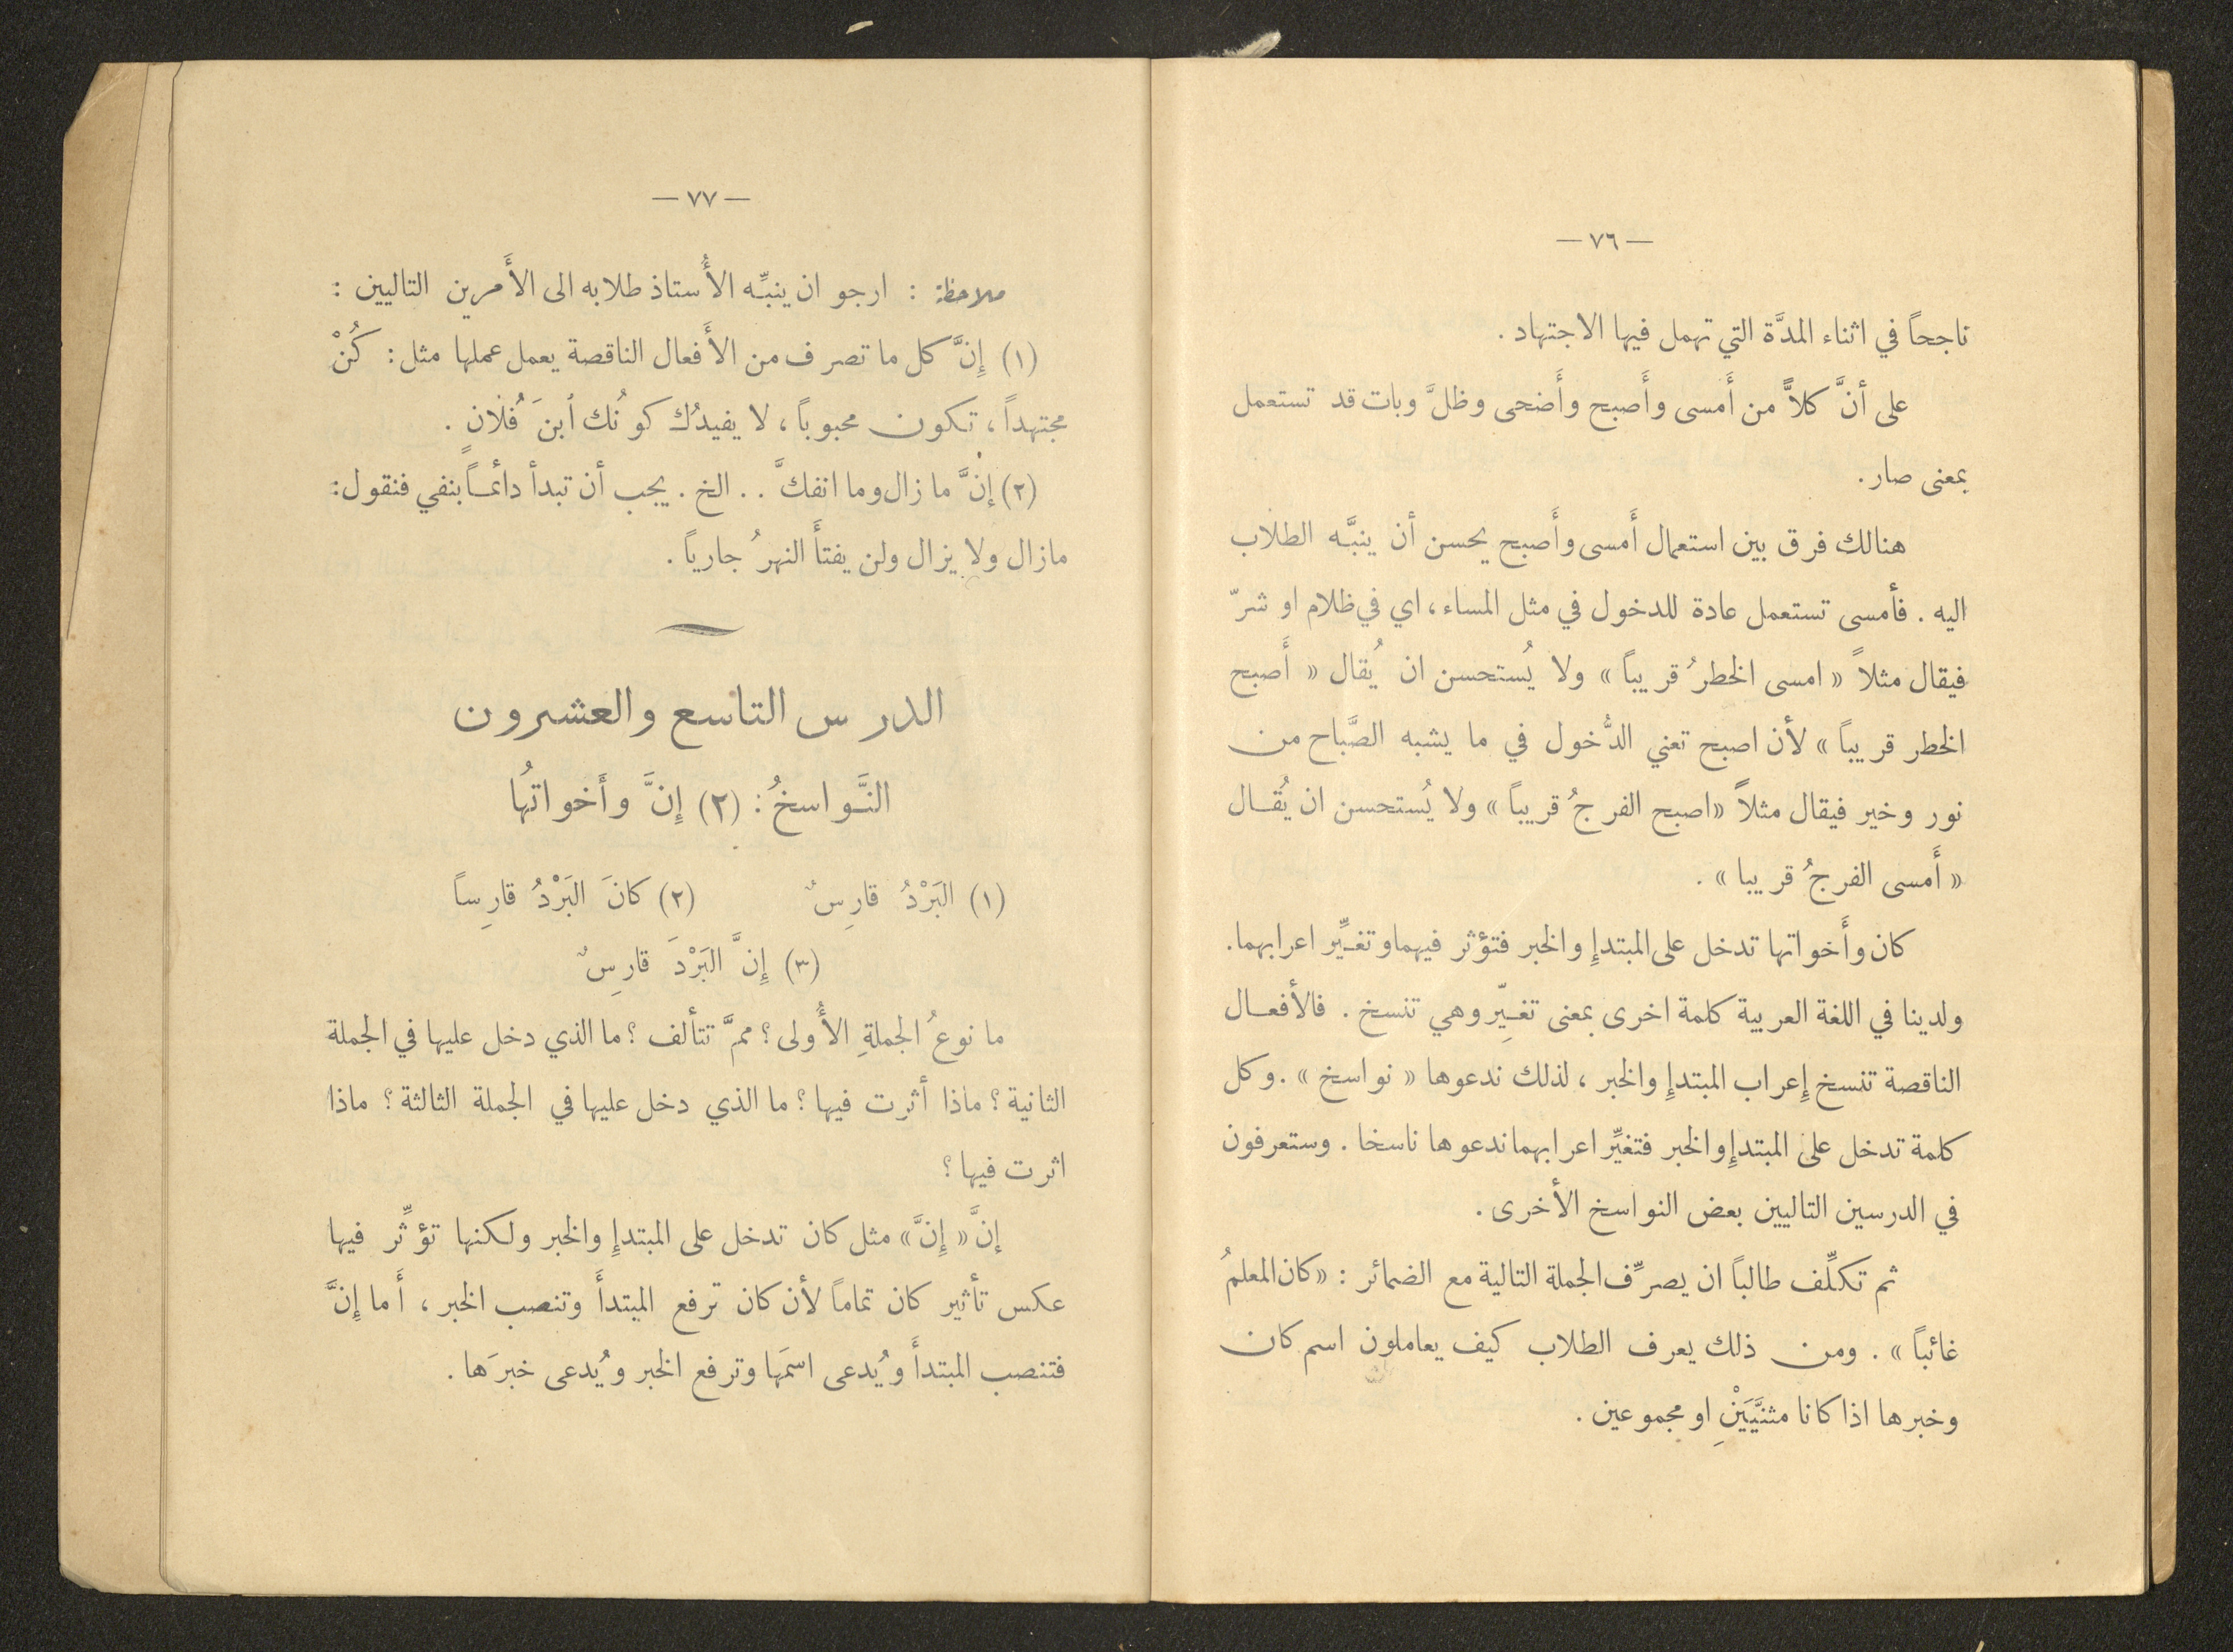 — ٧٦ —
ناجحاً في اثناء المدَّة التي تهمل فيها الاجتهاد .
على أنَّ كلاًّ من أَمسى وأَصبح وأَضحى وظلَّ وبات قد تستعمل
بمعنى صار .
هنالك فرق بين استعمال أَمسى وأَصبح يحسن أن ينبَّه الطلاب
اليه . فأمسى تستعمل عادة للدخول في مثل المساء ، اي في ظلام او شرّ
فيقال مثلاً « امسى الخطرُ قريباً » ولا يُستحسن ان يُقال « أَصبح
الخطر قريباً » لأن اصبح تعني الدُّخول في ما يشبه الصَّباح من
نور وخير فيقال مثلاً «اصبح الفرجُ قريباً » ولا يُستحسن ان يُقـال
« أَمسى الفرجُ قريبا » .
كان وأَخواتها تدخل على المبتدإِ والخبر فتؤثر فيهما وتغيِّر اعرابهما.
ولدينا في اللغة العربية كلمة اخرى بمعنى تغيِّر وهي تنسخ . فالأفعـال
الناقصة تنسخ إِعراب المبتدإِ والخبر ، لذلك ندعوها « نواسخ » . وكل
كلمة تدخل على المبتدإِ والخبر فتغيِّر اعرابهما ندعوها ناسخا . وستعرفون
في الدرسين التاليين بعض النواسخ الأخرى .
ثم تكلِّف طالباً ان يصرِّف الجملة التالية مع الضمائر : «كان المعلمُ
غائباً » . ومن ذلك يعرف الطلاب كيف يعاملون اسم كان
وخبرها اذا كانا مثنيَّيَيْنِ او مجموعين .
— ٧٧ —
ملاحظة : ارجو ان ينبِّه الأُستاذ طلابه الى الأَمرين التاليين :
(١) إِنَّ كل ما تصرف من الأَفعال الناقصة يعمل عملها مثل : كُنْ
مجتهداً ، تكون محبوباً ، لا يفيدُك كونُك ٱبنَ فُلانٍ .
(٢) إنَّ ما زال وما انفكَّ . . الخ . يجب أن تبدأ دائمـاً بنفي فنقول :
مازال ولا يزال ولن يفتأَ النهرُ جارياً .
الدرس التاسع والعشرون
النَّواسخُ : (٢) إِنَّ وأَخواتُها
(١) البَرْدُ قارِسٌ (٢) كانَ البَرْدُ قارِساً
(٣) إِنَّ البَرْدَ قارِسٌ
ما نوعُ الجملةِ الأُولى ؟ ممَّ تتألف ؟ ما الذي دخل عليها في الجملة
الثانية ؟ ماذا أثرت فيها ؟ ما الذي دخل عليها في الجملة الثالثة ؟ ماذا
اثرت فيها ؟
إنَّ « إِنَّ » مثل كان تدخل على المبتدإِ والخبر ولكنها تؤثِّر فيها
عكس تأثير كان تماماً لأن كان ترفع المبتدأَ وتنصب الخبر ، أَما إِنَّ
فتنصب المبتدأَ ويُدعى اسمَها وترفع الخبر ويُدعى خبرَها .